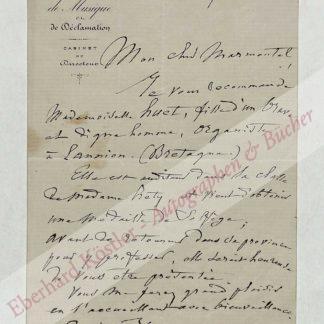 de Musique
et
de Déclamation
CABINET
du
Directeur
Mon cher Marmontel
Je vous recommande
Mademoiselle Huet, fille d'un brave
et digne homme, organiste
à Lannion (Bretagne)
Elle est auditeur dans la classe
de Madame Réty et vient d'obtenir
une médaille de Solfège;
avant de retourner dans sa province
pour y professer, elle serait heureuse
de vous être présentée
Vous me ferez grand plaisir
en l'accueillant avec bienveillance
Eberhard Köstler - Autographen & Bücher